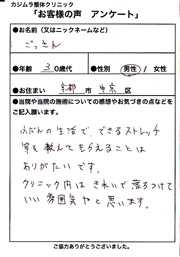 カジムラ整体クリニック
「お客様の声 アンケート」
●お名前（又はニックネームなど）
ごっさん
●年齢 30歳代 ●性別 男性 / 女性
●お住まい 京都 市 中京 区
●当院や当院の施術についての感想やお気づきの点などをご記入願います。
ふだんの生活で、できるストレッチ
等を教えてもらえることは
ありがたいです。
クリニック内はきれいで落ちつけて
いい雰囲気やと思います。
ご協力ありがとうございました。